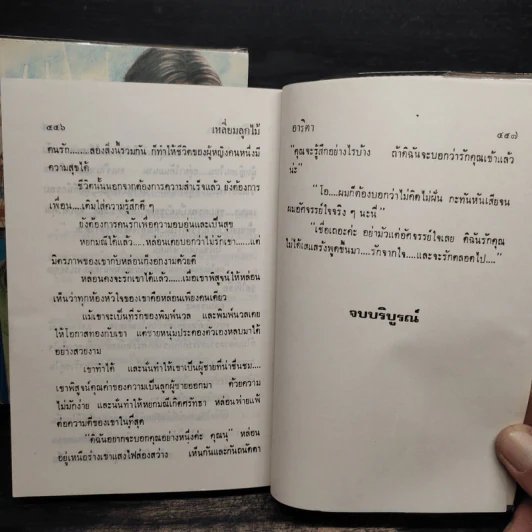 ๔๕๖ เหลี่ยมลูกไม้
คนรัก.......สองสิ่งนี้รวมกัน ก็ทำให้ชีวิตของผู้หญิงคนหนึ่งมี
ความสุขได้
ชีวิตนั้นนอกจากต้องการความสำเร็จแล้ว ยังต้องการ
เพื่อน....เติมใส่ความรู้สึกดี ๆ
ยังต้องการคนรักเพื่อความอบอุ่นและเป็นสุข
หยกมณีได้แล้ว.....หล่อนเคยบอกว่าไม่รักเขา.....แต่
มิตรภาพของเขากับหล่อนก็งอกงามด้วยดี
หล่อนคงจะรักเขาได้แล้ว......เมื่อเขาพิสูจน์ให้หล่อน
เห็นว่าทุกห้องหัวใจของเขาคือหล่อนเพียงคนเดียว
แม้เขาจะเป็นที่รักของพิมพ์นวล และพิมพ์นวลเคย
ให้โอกาสทองกับเขา แต่ชายหนุ่มประคองตัวเองหลบมาได้
อย่างสวยงาม
เขาทำได้ และนั่นทำให้เขาเป็นผู้ชายที่น่าชื่นชม....
เขาพิสูจน์คุณค่าของความเป็นลูกผู้ชายออกมา ด้วยความ
ไม่มักง่าย และนั่นทำให้หยกมณีเกิดศรัทธา หล่อนพ่ายแพ้
ต่อความดีของเขาในที่สุด
"ดิฉันอยากจะบอกคุณอย่างหนึ่งค่ะ คุณนุ" หล่อน
อยู่เหนือร่างเขาแสงไฟส่องสว่าง เห็นกันและกันถนัดตา
อาริตา ๔๕๗
"คุณจะรู้สึกอย่างไรบ้าง ถ้าดิฉันจะบอกว่ารักคุณเข้าแล้ว
น่ะ"
"โอ....ผมก็ต้องบอกว่าไม่คิดไม่ฝัน กะทันหันเสียจน
ผมอัศจรรย์ใจจริง ๆ นะนี่"
"เชื่อเถอะค่ะ อย่ามัวแต่อัศจรรย์ใจเลย ดิฉันรักคุณ
ไม่ได้เสแสร้งพูดขึ้นมา....รักจากใจ....และจะรักตลอดไป...."
จบบริบูรณ์